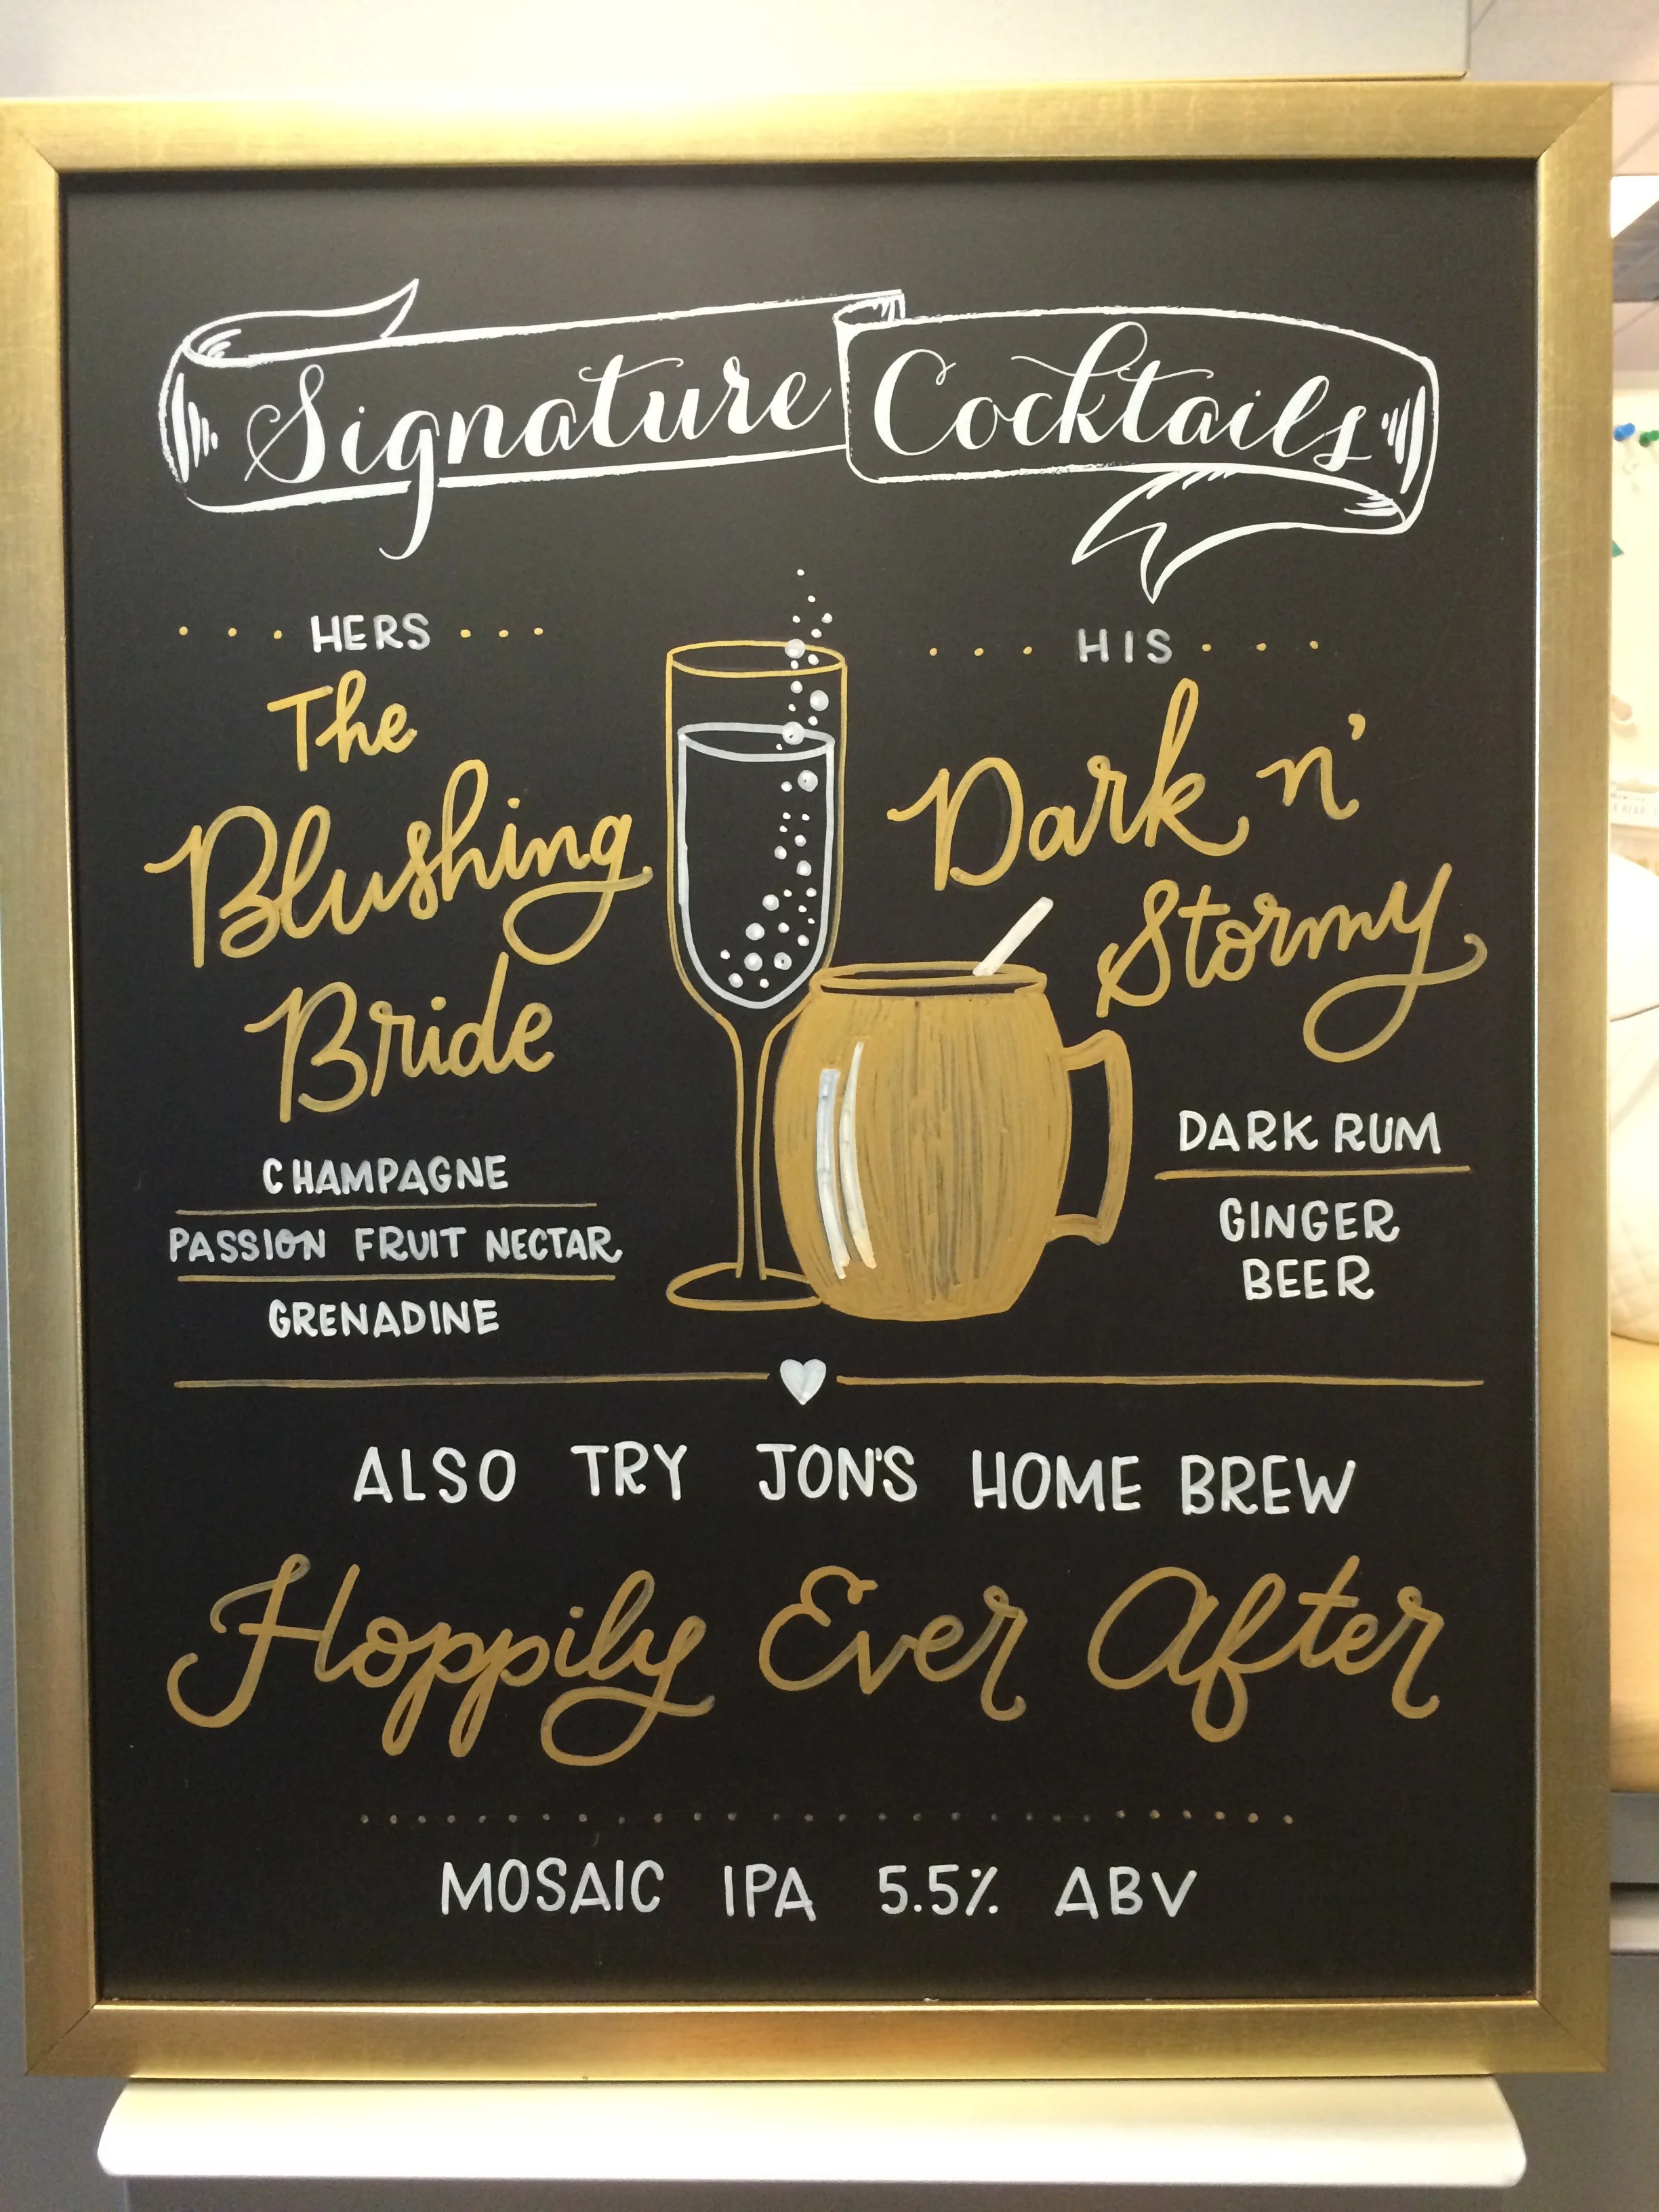 Signature Cocktails
HERS
The
Blushing
Bride
CHAMPAGNE
PASSION FRUIT NECTAR
GRENADINE
HIS
Dark n'
Stormy
DARK RUM
GINGER
BEER
ALSO TRY JON'S HOME BREW
Hoppily Ever After
MOSAIC IPA 5.5% ABV